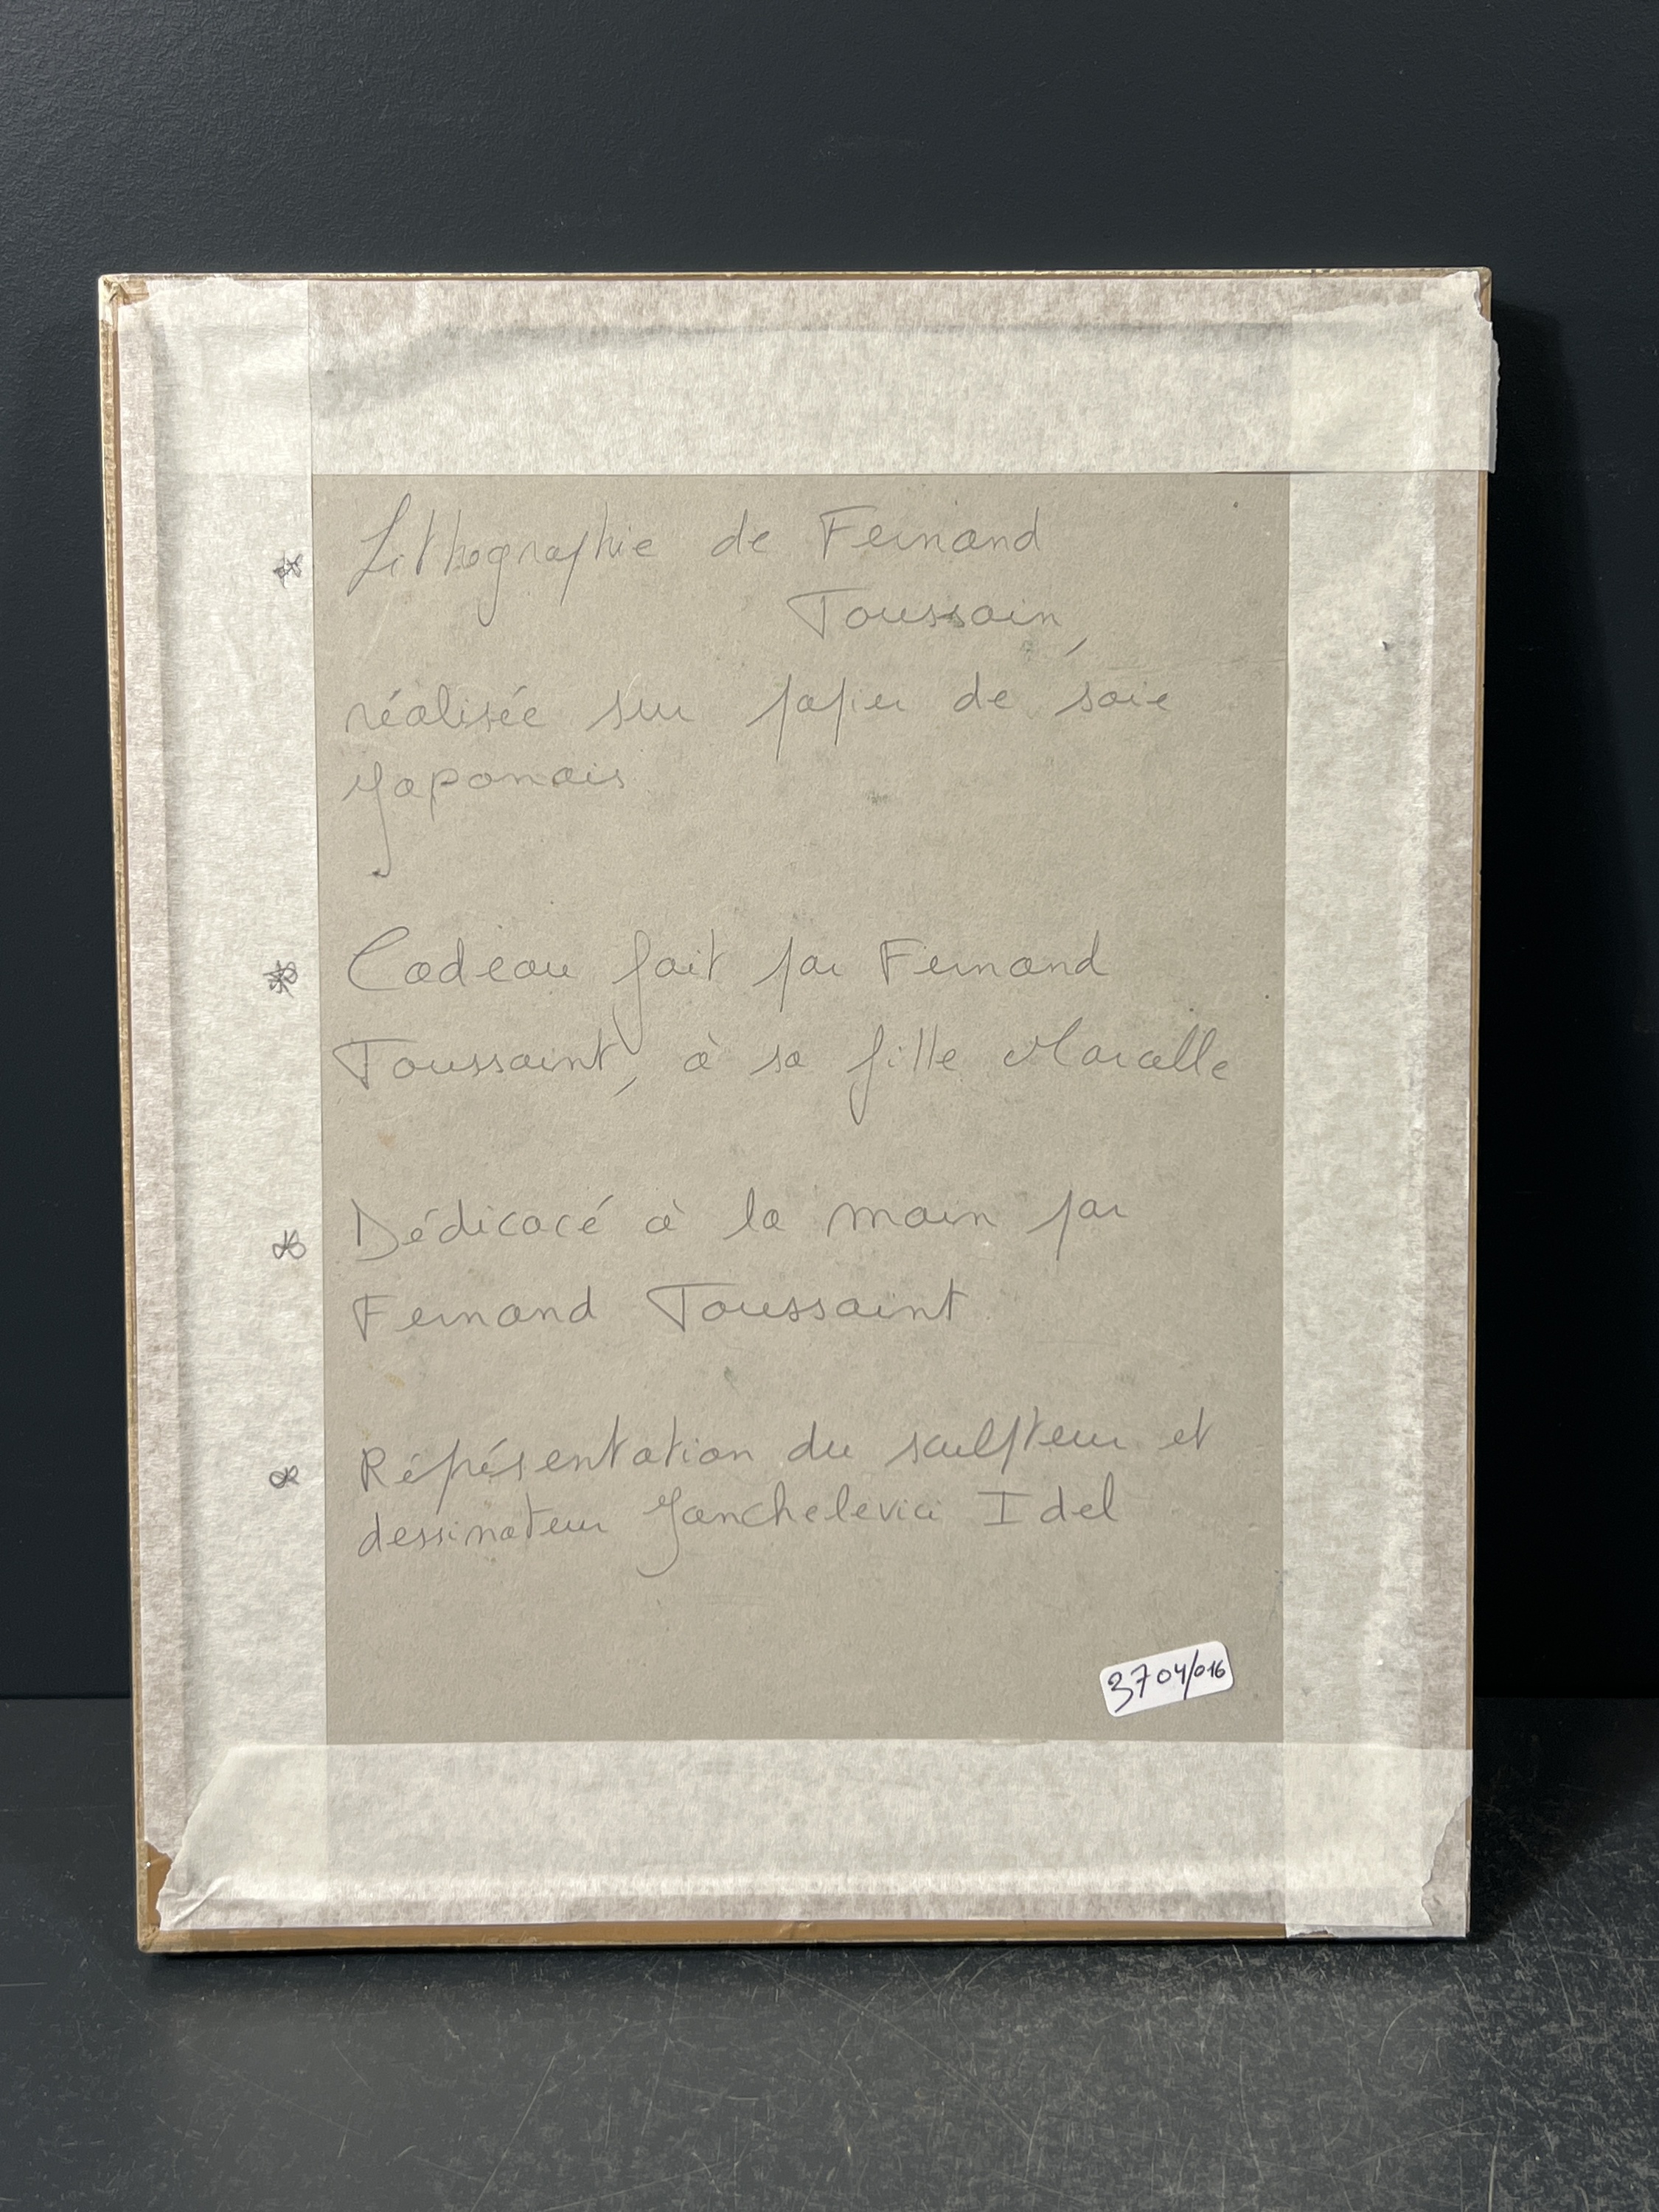 * Lithographie de Fernand
Toussain,
réalisée sur papier de soie
Japonais
* Cadeau fait par Fernand
Toussaint, à sa fille Marcelle
* Dédicacé à la main par
Fernand Toussaint
* Réprésentation du sculpteur et
dessinateur Janchelevici Idel
3704/016